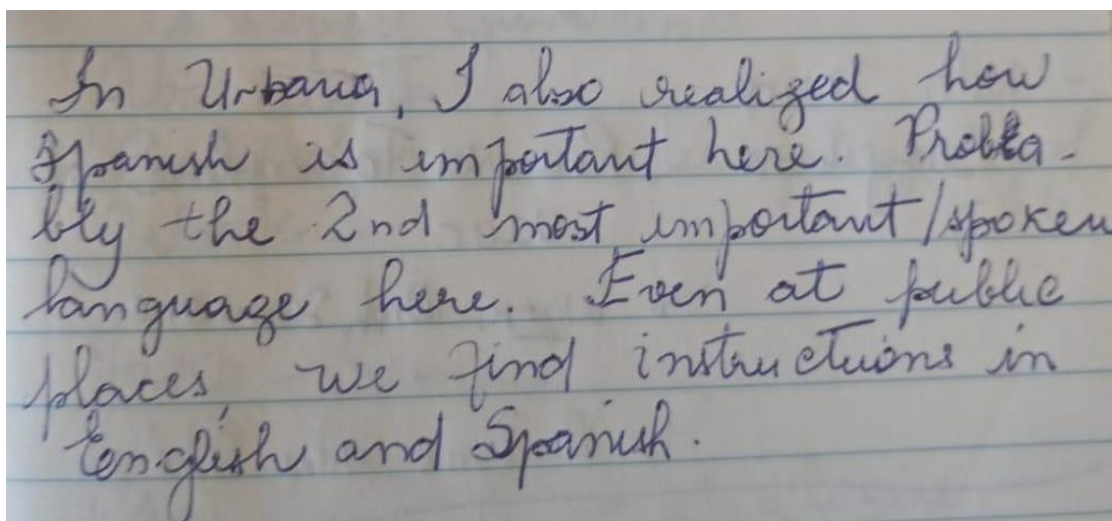 In Urbana, I also realized how
Spanish is important here. Proba-
bly the 2nd most important/spoken
language here. Even at public
places, we find instructions in
English and Spanish.